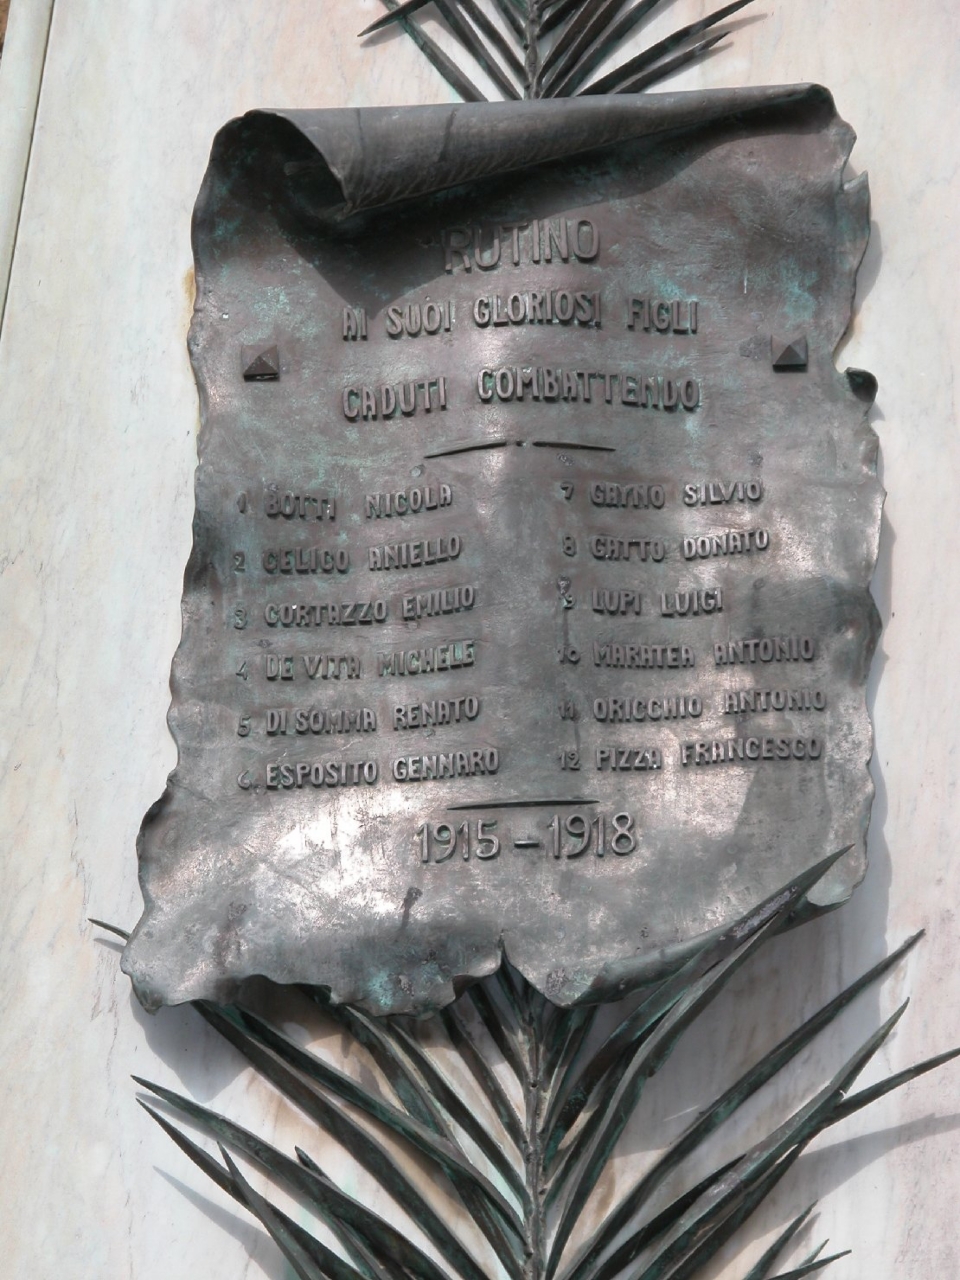 RUTINO
AI SUOI GLORIOSI FIGLI
CADUTI COMBATTENDO
1 BOTTI NICOLA
2 CELICO ANIELLO
3 CORTAZZO EMILIO
4 DE VITA MICHELE
5 DI SOMMA RENATO
6 ESPOSITO GENNARO
7 GAYNO SILVIO
8 GATTO DONATO
9 LUPI LUIGI
10 MARATEA ANTONIO
11 ORICCHIO ANTONIO
12 PIZZA FRANCESCO
1915 - 1918